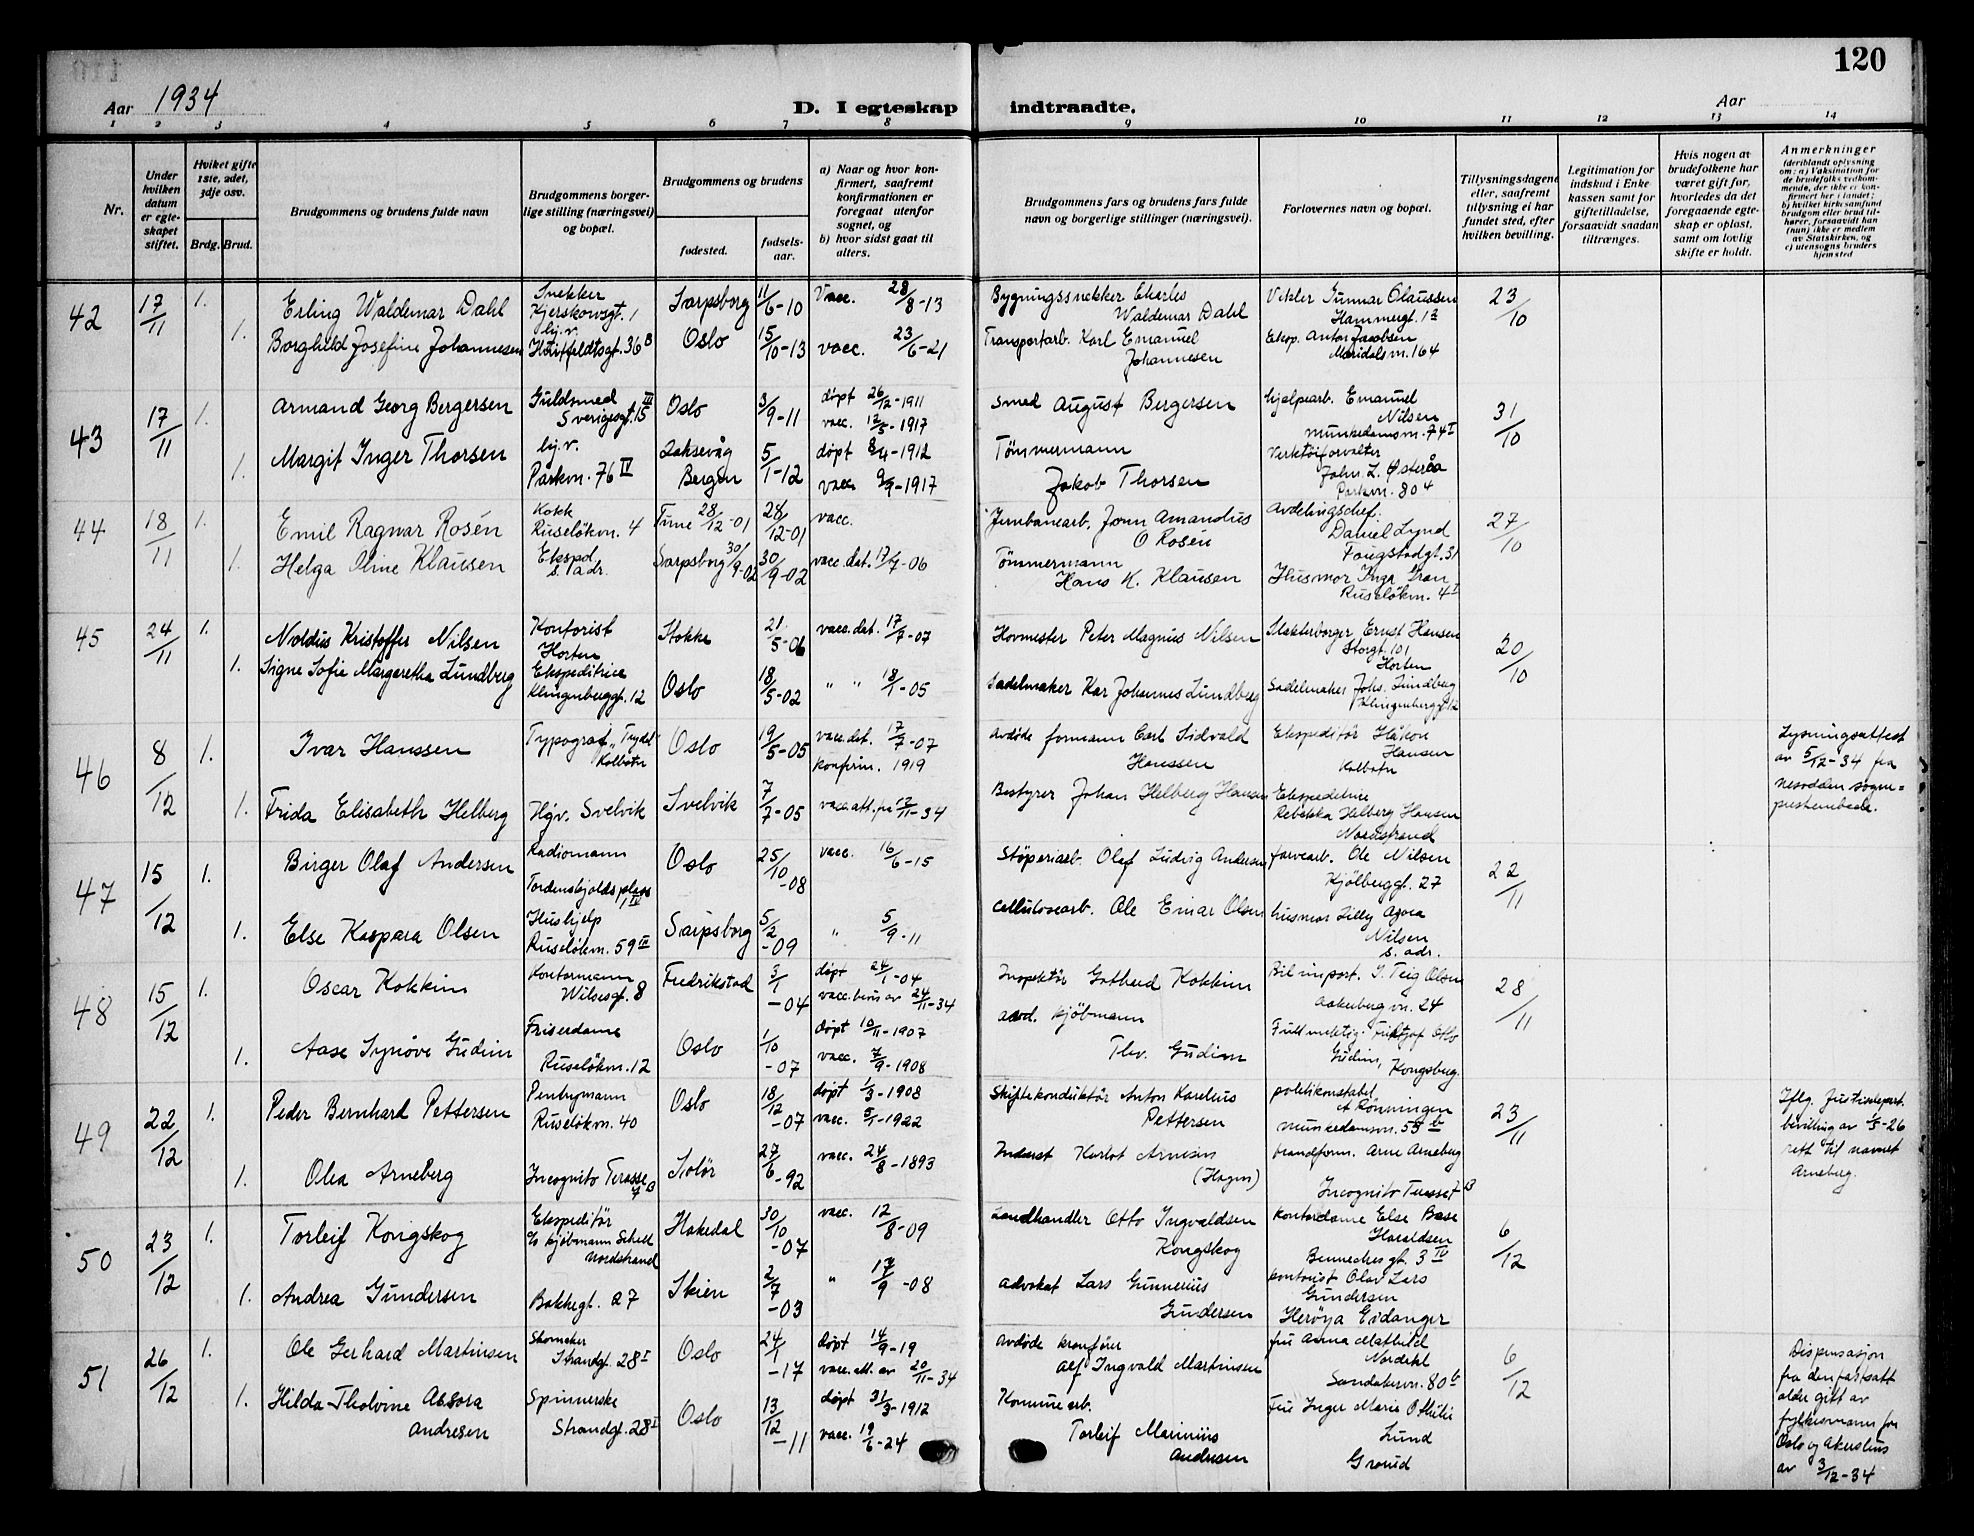 120
Aar 1934
D. I egteskap indtraadte.
Aar
1 2 3 4 5 6 7 8 9 10 11 12 13 14
Nr.
Under hvilken datum er egteskapet stiftet.
Hvilket gifte 1ste, 2det, 3dje osv.
Brdg. Brud.
Brudgommens og brudens fulde navn
Brudgommens borgerlige stilling (næringsvei) og bopæl.
Brudgommens og brudens
fødested.
fødselsaar.
a) Naar og hvor konfirmert, saafremt konfirmationen er foregaat utenfor sognet, og
b) hvor sidst gaat til alters.
Brudgommens fars og brudens fars fulde navn og borgerlige stillinger (næringsvei).
Forlovernes navn og bopæl.
Tillysningsdagene eller, saafremt tillysning ei har fundet sted, efter hvilken bevilling.
Legitimation for indskud i Enkekassen samt for giftetilladelse, forsaavidt saadan tiltrænges.
Hvis nogen av brudefolkene har været gift før, hvorledes da det foregaaende egteskap er opløst, samt om lovlig skifte er holdt.
Anmerkninger
(deriblandt oplysning om: a) Vaksination for de brudefolks vedkommende, der ikke er konfirmert her i landet; b) hvilket kirkesamfund brudgom eller brud tilhører, forsaavidt han (hun) ikke er medlem av Statskirken, og c) utensogns bruders hjemsted
42 17/11 1. Erling Waldemar Dahl Snekker Kjerskowsgt. 1 Sarpsborg 11/6-10 Vacc. 28/8-13 Bygningssnekker Charles Waldemar Dahl Vikler Gunnar Olaussen Hammergt. 12 23/10
1. Borghild Josefine Johannesen hj.v. Huitfeldtsgt. 36B Oslo 15/10-13 vacc. 23/6-21 Transportarb. Karl Emanuel Johannesen Eksp. Anton Jacobsen Maridalsvn. 164
43 17/11 1. Armand Georg Bergersen Guldsmed Sverigesgt. 15 III Oslo 3/9-11 døpt 26/12-1911 vacc. 12/5-1917 Smed August Bergersen hjelpearb. Emanuel Nilsen Munkedamsvn. 74 I 31/10
1. Margit Inger Thorsen hj.v. Parkvn. 76 IV Laksevåg Bergen 5/1-12 døpt 8/4-1912 vacc. 9/9-1917 Tömmermann Jakob Thorsen Verktöiforvalter John. L. Østeråa Parkvn. 80 4
44 18/11 1. Emil Ragnar Rosén Kokk Ruselökvn. 4 Tune 28/12-01 28/12-01 vacc. Jernbanearb. Jonn Amandus O Rosén Avdelingschef. Daniel Lynd Fougstadgt. 31 27/10
1. Helga Oline Klausen Eksped. s. adr. Sarpsborg 30/9-02 30/9-02 vacc. dat. 17/7-06 Tömmermann Hans K. Klausen Husmor Inga Gran Ruselökvn. 4 I
45 24/11 1. Noldus Kristoffer Nilsen Kontorist Horten Stokke 21/5-06 vacc. dat. 17/7-07 Hovmester Peter Magnus Nilsen Slakterborger Ernst Hansen Storgt. 101 Horten 20/10
1. Signe Sofie Margaretha Lundberg Ekspeditrice Klingenberggt. 12 Oslo 18/5-02 " " 18/1-05 Sadelmaker Kar Johannes Lundberg Sadelmaker Johs. Lundberg Klingenberggt. 12
46 8/12 1. Ivar Hanssen Typograf Kolbotn Oslo 19/5-05 vacc. dat. 17/7-07 konfirm. 1919 Avdöde formann Carl Sidvald Hanssen Ekspeditör Håkon Hansen Kolbotn Lysningsattest av 5/12-34 fra Nesodden sogneprestembede.
1. Frida Elisabeth Helberg Hgv. Svelvik Svelvik 7/7-05 vacc. att. fra 17/11-34 Bestyrer Johan Helberg Hansen Ekspeditrise Rebekka Helberg Hansen Nordstrand
47 15/12 1. Birger Olaf Andersen Radiomann Tordenskjoldsplass 1 IV Oslo 25/10-08 vacc. 16/6-15 Stöperiarb. Olaf Ludvig Andersen farvearb. Ole Nilsen Kjölberggt. 27 22/11
1. Else Kaspara Olsen Hushjelp Ruselökvn. 59 II Sarpsborg 5/2-09 " 5/9-11 Cellulosearb. Ole Einar Olsen husmor Lilly Agora Nilsen s. adr.
48 15/12 1. Oscar Kokkim Kontormann Wilsesgt. 8 Fredrikstad 3/1-04 døpt 24/1-04 vacc. bevis av 24/11-34 Inspektör Gotherd Kokkim Bilimport. S. Teig Olsen Aakerberg vn. 24 28/11
1. Aase Synöve Gudim Friserdame Ruselökvn. 12 Oslo 1/10-07 døpt 10/11-1907 vacc. 7/9-1908 avd. kjöbmann Thv. Gudim Fullmektig Fridtjof Otto Gudim, Kongsberg.
49 22/12 1. Peder Bernhard Pettersen Penbymann Ruselökvn. 40 Oslo 18/12-07 døpt 1/3-1908 vacc. 5/1-1922 Skiftekonduktör Anton Karelius Pettersen politikonstabel A Rönningen Munkedamsvn. 53 b 23/11 Iflg. Justisdepart. bevilling av 1/3-26 rett til navnet Arneberg.
1. Olea Arneberg Incognito Terasse 7 B Solör 27/6-92 vacc. 24/8-1893 Inderst Karlot Arnesen (Hagen) brandform. Arne Arneberg Incognito Terasse 7 B
50 23/12 1. Torleif Kongskog Ekspeditör c/o kjöbmann Schell Nordstrand Hakedal 30/10-07 vacc. 12/8-09 Landhandler Otto Ingvaldsen Kongskog Kontordame Else Base Haraldsen Bennechesgt. 3 IV 6/12
1. Andrea Gundersen Bakkegt. 27 Skien 2/7-03 " 17/9-08 Advokat Lars Gunnerius Gundersen kontorist Olav Lars Gundersen Heröya Eidanger
51 26/12 1. Ole Gerhard Martinsen Skomaker Strandgt. 28 I Oslo 24/1-17 døpt 14/9-19 vacc. att. av 20/11-34 Avdöde kranförer Alf Ingvald Martinsen fru Anna Mathild Nordahl Sandakervn. 80 b 6/12 Dispensasjon fra den fastsatt alder gitt av fylkesmann for Oslo og Akershus av 3/12-34
1. Hilda Tholvine Absora Andresen Spinnerske Strandgt. 28 I Oslo 13/12-11 døpt 31/3-1912 vacc. 19/6-24 Kommunearb. Torleif Marinius Andresen Fru Inger Marie Othilie Lund Grorud